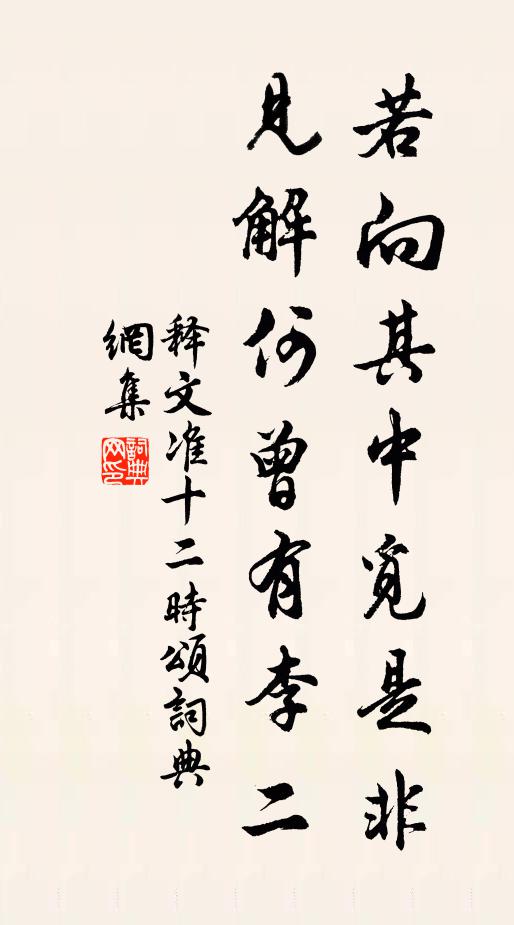 若向其中覓是非
見解何曾有李二
释文准十二時頌詞典
網集
詞典网印